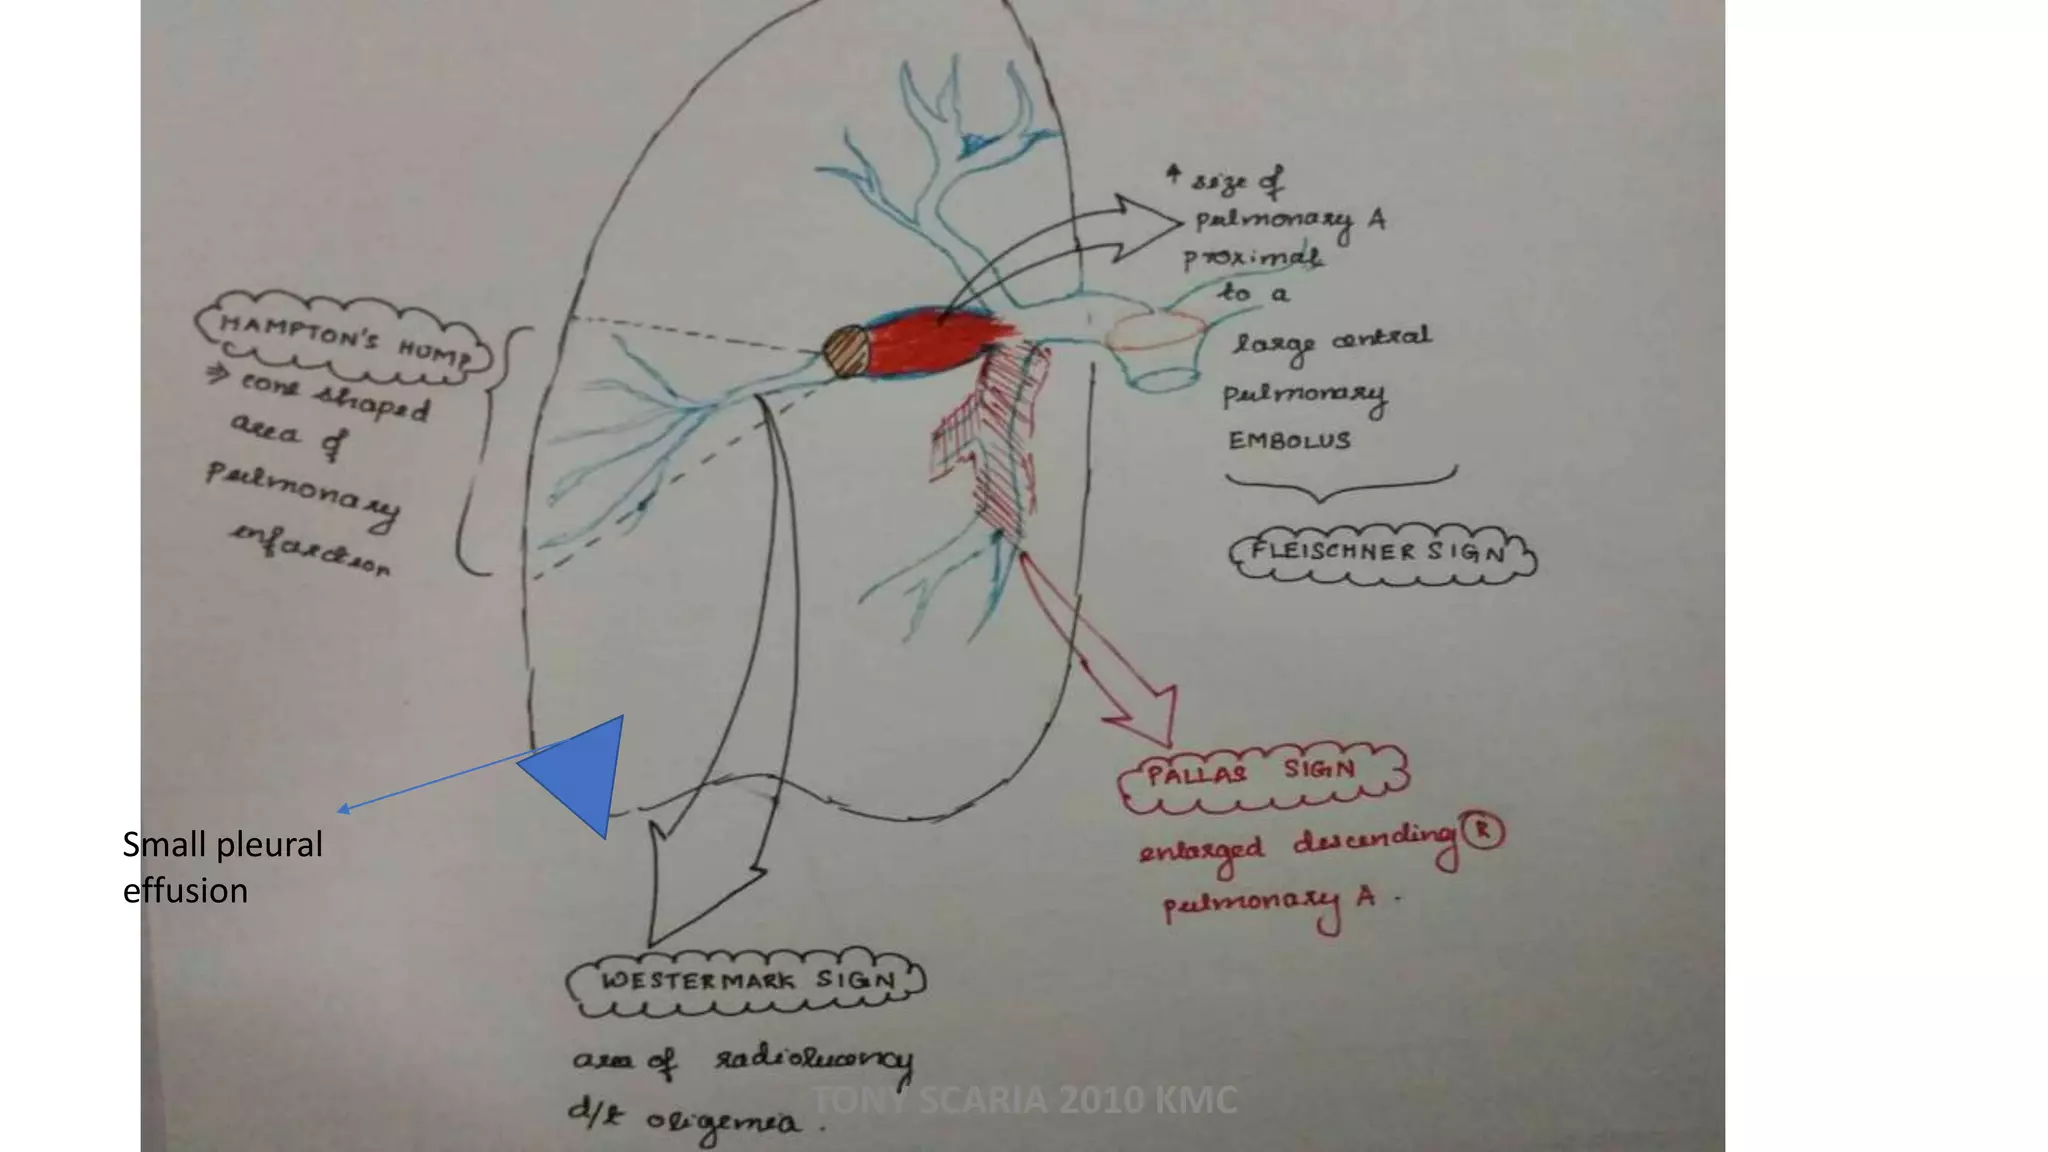 HAMPTON'S HUMP
⇒ cone shaped
area of
pulmonary
infarction
↑ size of
pulmonary A
proximal
to a
large central
pulmonary
EMBOLUS
FLEISCHNER SIGN
PALLAS SIGN
enlarged descending Ⓡ
pulmonary A.
Small pleural
effusion
WESTERMARK SIGN
area of radiolucency
d/t oligemia.
TONY SCARIA 2010 KMC